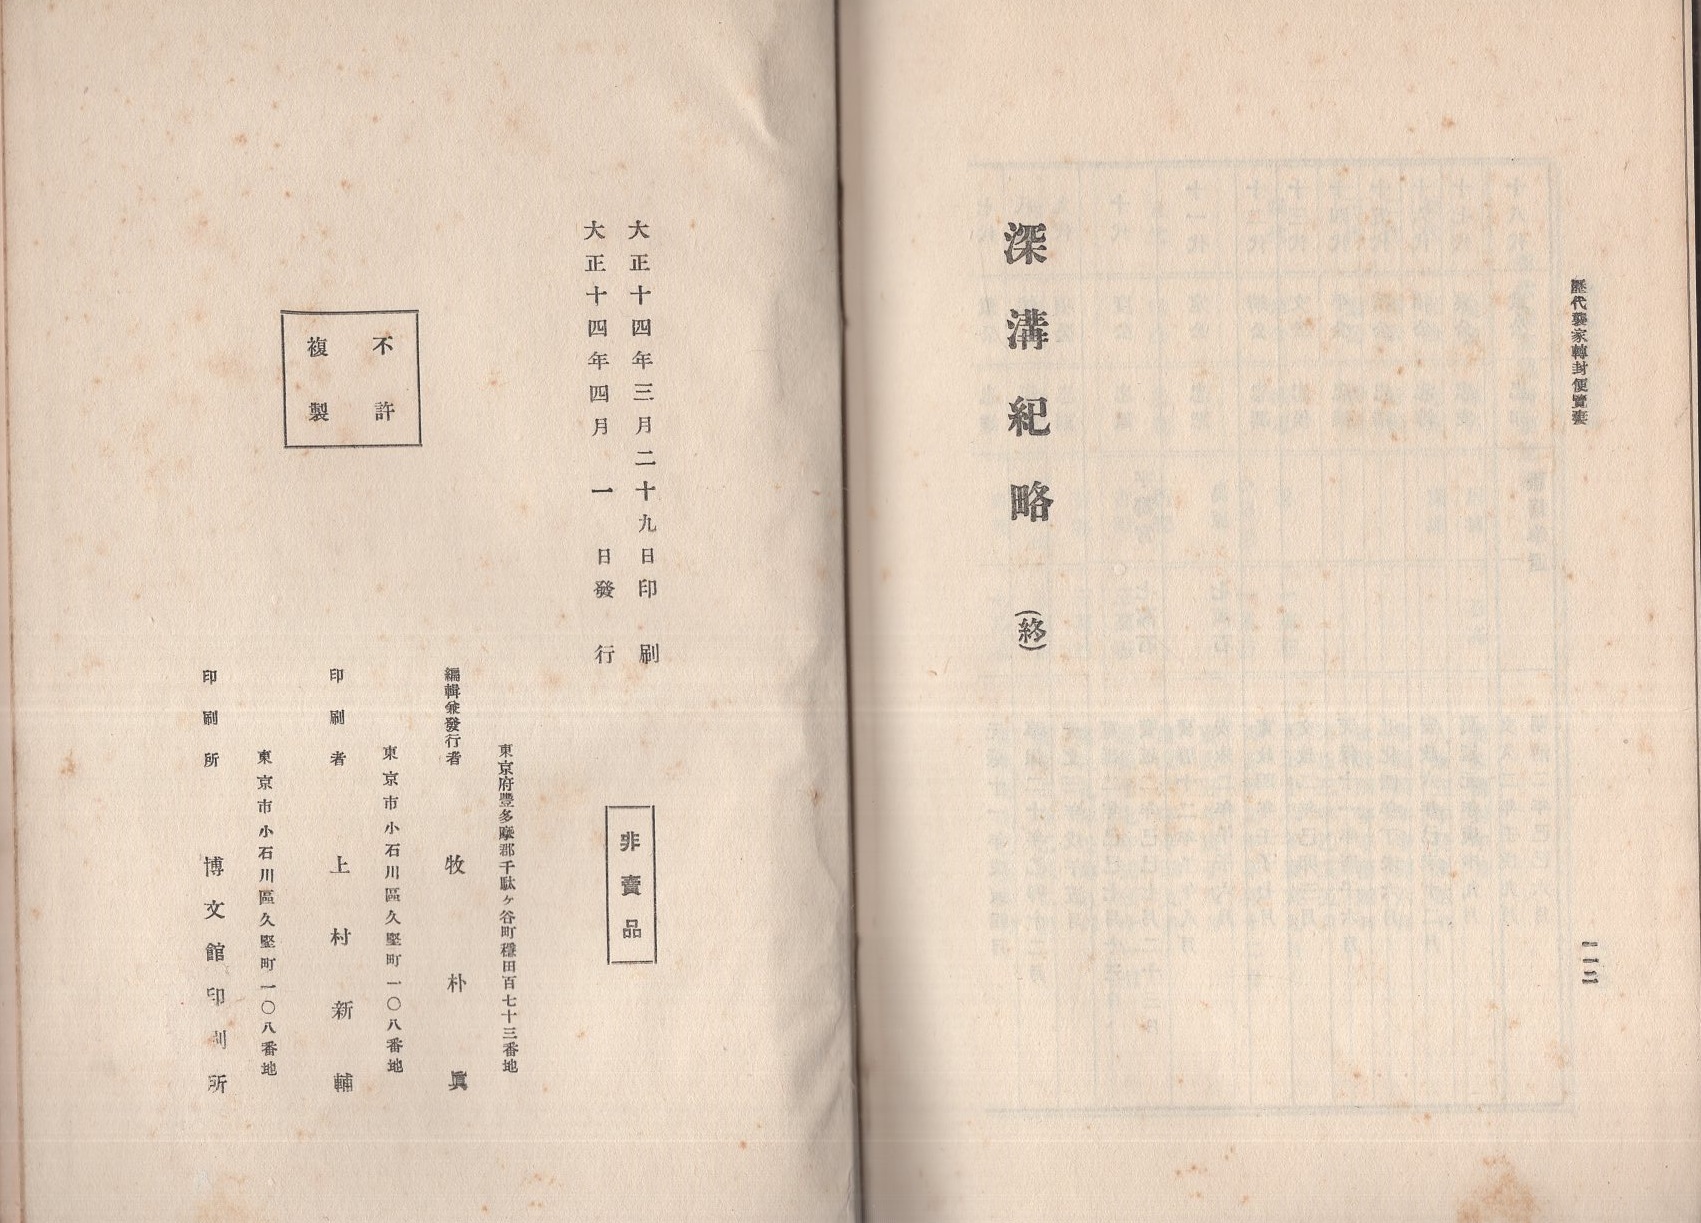 歷代襲家轉封便覽表
二一二
深溝紀略 (終)
大正十四年三月二十九日印刷
大正十四年四月一日發行
非賣品
東京府豐多摩郡千駄ヶ谷町穩田百七十三番地
編輯兼發行者 牧朴眞
東京市小石川區久堅町一〇八番地
印刷者 上村新輔
東京市小石川區久堅町一〇八番地
印刷所 博文館印刷所
不許
複製